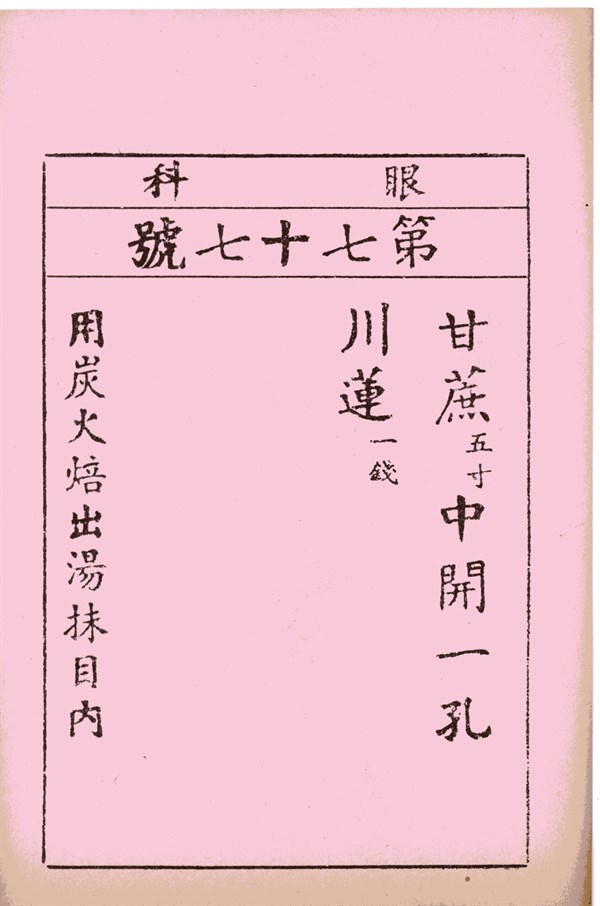 眼科
第七十七號
甘蔗五寸中開一孔
川蓮一錢
用炭火焙出湯抹目內